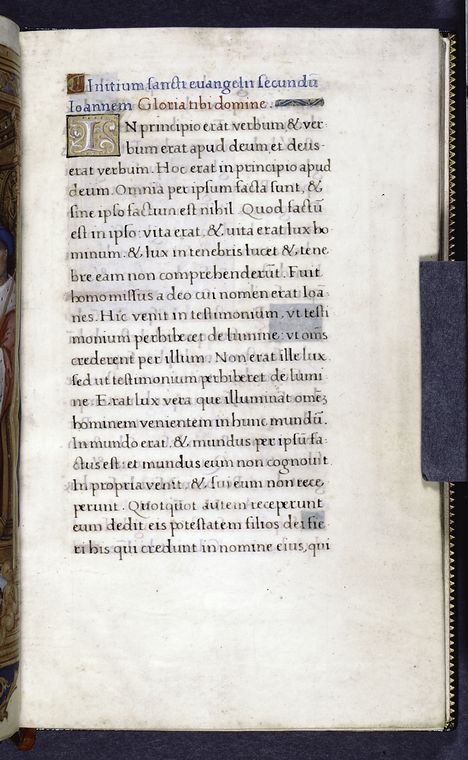 Initium sancti evangelii secundū
Ioannem Gloria tibi domine.
IN principio erat verbum & ver
bum erat apud deum, et deus
erat verbum. Hoc erat in principio apud
deum. Omnia per ipsum facta sunt, &
sine ipso factum est nihil. Quod factū
est in ipso vita erat, & vita erat lux ho
minum. & lux in tenebris lucet &, tene
bre eam non comprehenderūt. Fuit
homo missus a deo cui nomen erat Ioā
nes. Hic venit in testimonium, vt testi
monium perhiberet de lumine: vt om̄s
crederent per illum. Non erat ille lux
sed ut testimonium perhiberet de lumi
ne. Erat lux vera que illuminat omeꝫ
hominem venientem in hunc mundū.
In mundo erat, &, mundus per ipsū fa-
ctus est: et mundus eum non cognouit.
In propria venit, &, sui eum non rece
perunt. Quotquot autem receperunt
eum dedit eis potestatem filios dei fie
ri his qui credunt in nomine eius, qui